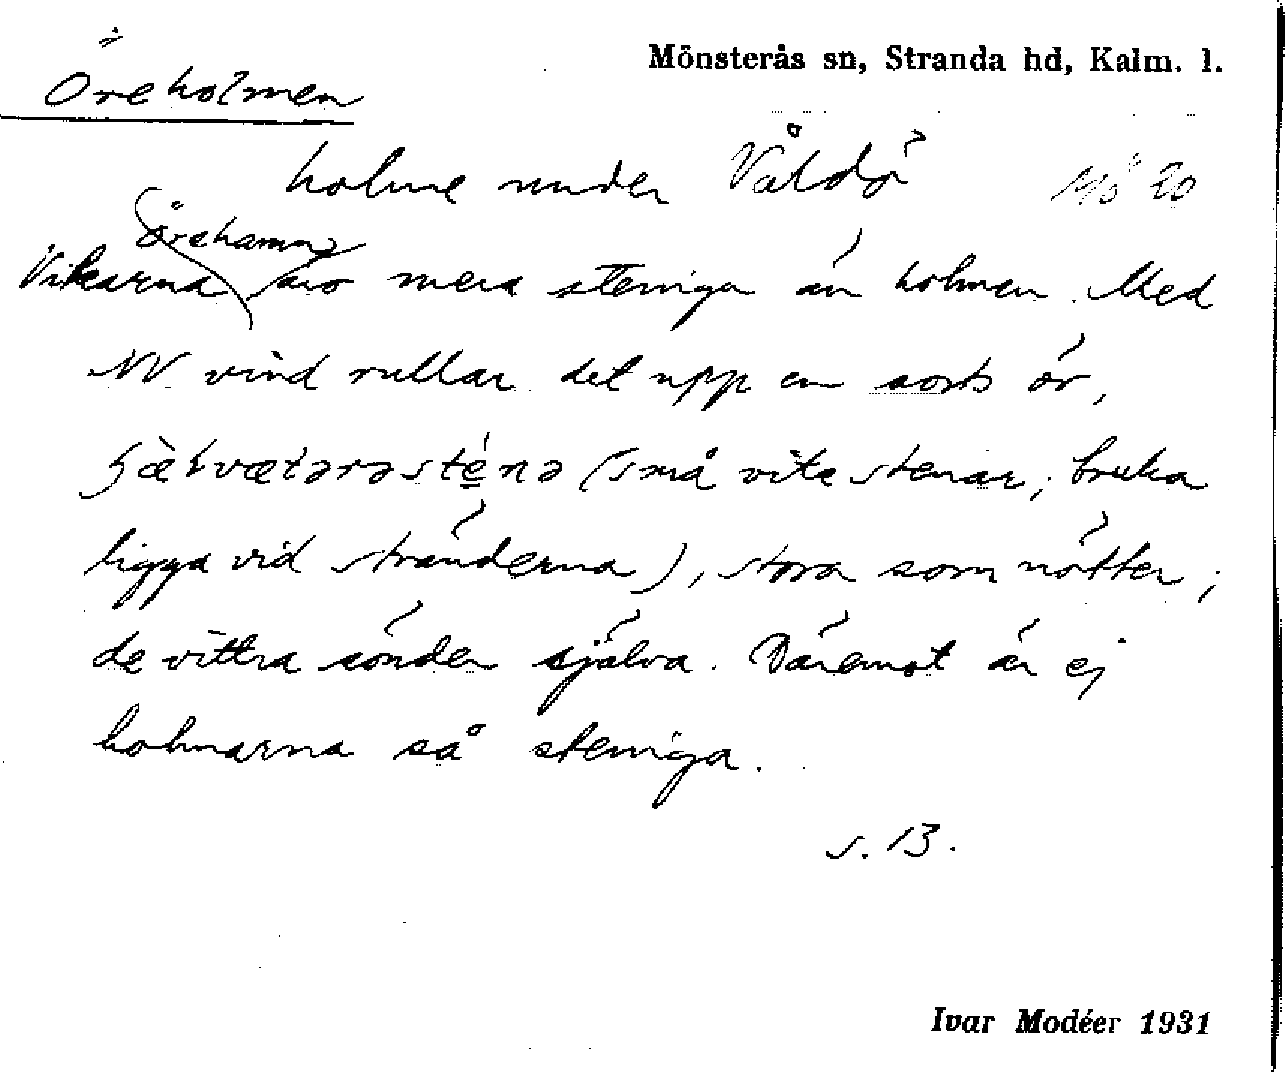 Mönsterås sn, Stranda hd, Kalm. l.
Öreholmen
holme under Våldö Mö 20
örehamn
Vikarna äro mera steniga än holmen. Med
NV vind rullar det upp en sorts ör,
(små vita stenar; bruka
ligga vid stränderna), stora som nötter;
de vittra sönder själva. Däremot är ej
holmarna så steniga.
s. 13.
Ivar Modéer 1931